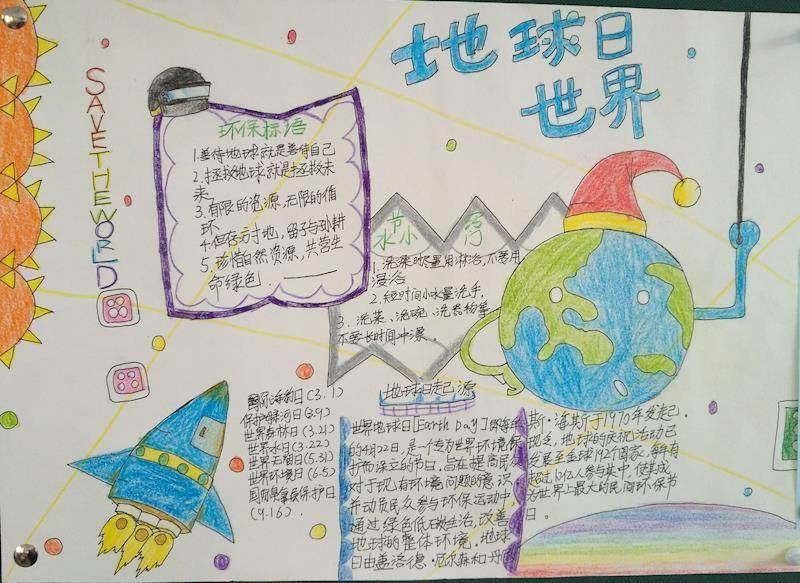 地球日
世界
SAVE THE WORLD
环保标语
1.善待地球就是善待自己
2.拯救地球就是拯救未
来
3.有限的资源,无限的循
环
4.但存方寸地,留予与孙耕
5.珍惜自然资源,共营生
命绿色.
节
水小
1.洗澡时尽量用淋浴,不要用
浸浴
2.短时间小水量洗手,
3.洗菜、洗碗、洗衣物等
不要长时间冲漂。
国际海豹日(3.1)
保护母亲河日(3.9)
世界森林日(3.21)
世界水日(3.22)
世界无烟日(5.31)
世界环境日(6.5)
保护日
(9.16).
地球日起源
世界地球日[Earth Day]即每年
的4月22日,是一个专为世界环境保
护而设立的节日,旨在提高民众
对于现有环境问题的意识
并动员民众参与环保运动中,
通过绿色低碳生活,改善
地球的整体环境,地球
日由盖洛德·尼尔森和丹尼
斯·海斯于1970年发起.
现今,地球的庆祝活动已
发展至全球192个国家,每年有
超过10亿人参与其中,使其成
为世界上最大的民间环保节
日。